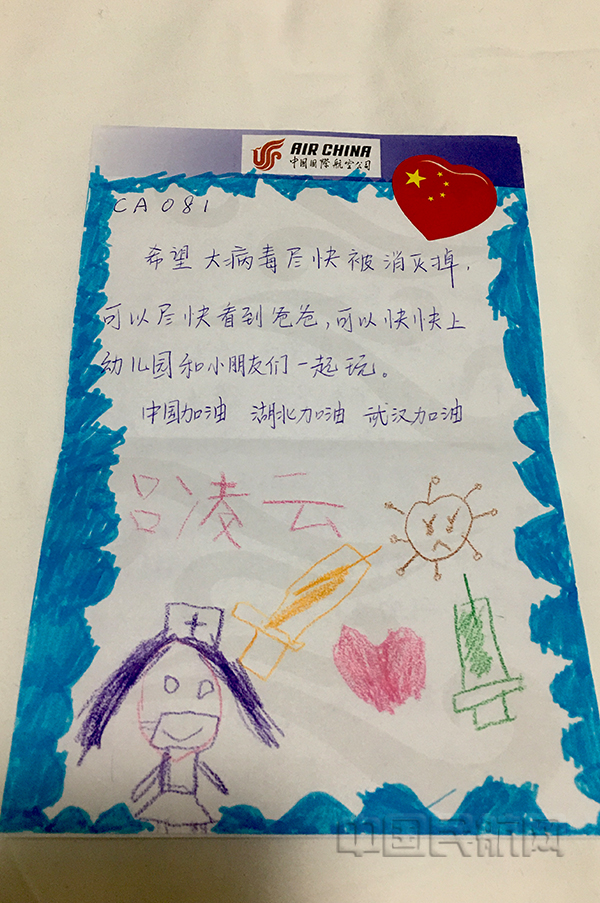 AIR CHINA
中国国際航空公司
CA081
希望大病毒尽快被消灭掉，
可以尽快看到爸爸，可以快快上
幼儿园和小朋友们一起玩。
中国加油 湖北加油 武汉加油
吕凌云
中国民航网